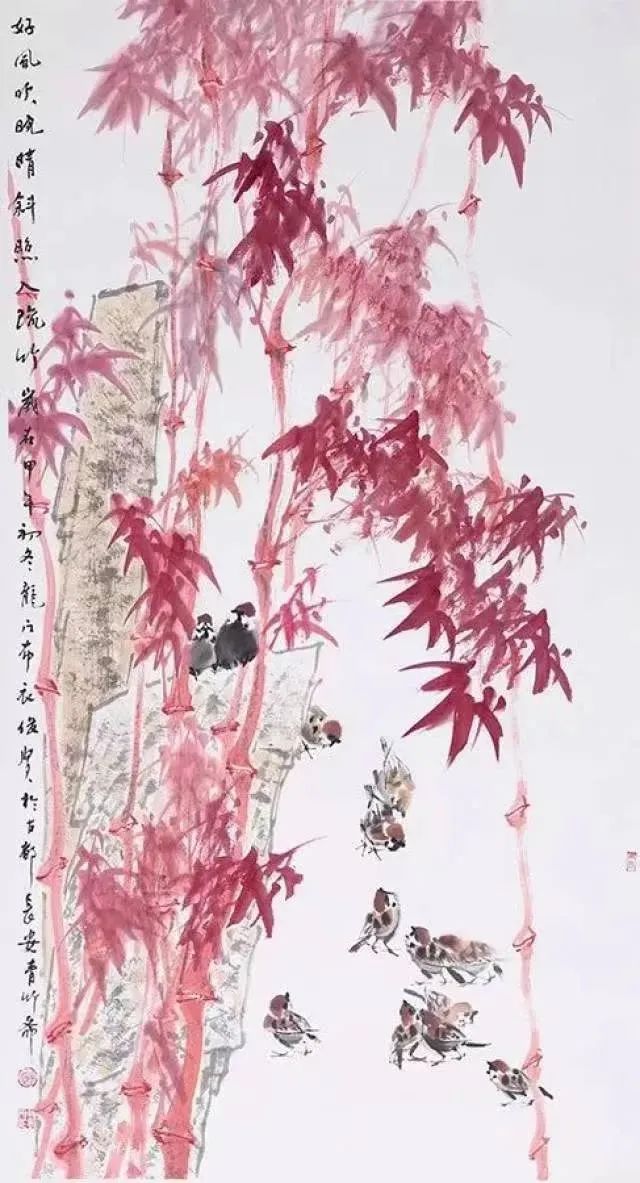 好風吹晚晴斜照入疏竹歲在甲午初冬龍门布衣俊贤於古都長安青竹斋